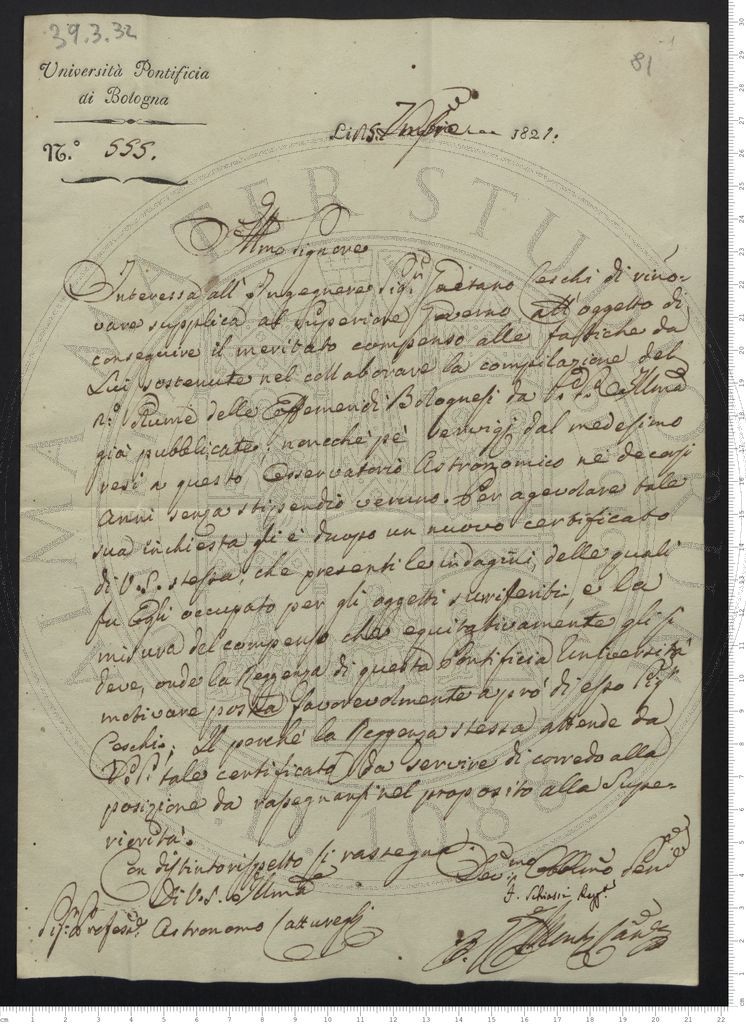 39.3.32
81
Università Pontificia
di Bologna
N.º 555.
Li 15. 7mbre 1821.
Illmo signore
Interessa all' Ingegnere Sigr Gaetano Ceschi di rino-
vare supplica al Superiore Governo all' oggetto di
conseguire il meritato compenso alle fattiche da
Lui sostenute nel collaborare la compilazione del
delle Effemeridi Bolognesi da V. S. Illma
già pubblicate; nonchè pe' servigj dal medesimo
resi a questo Osservatorio Astronomico ne' decorsi
Anni senza stipendio veruno. Per agevolare tale
sua inchiesta gli è duopo un nuovo certificato
di V. S. stessa, che presenti le indagini, delle quali
fu Egli occupato per gli oggetti suriferiti, e la
misura del compenso che equitativamente gli si
deve, onde la Reggenza di questa Pontificia Università
motivare possa favorevolmente a pro' di esso Sigr
Ceschi. Il perchè la Reggenza stessa attende da
V. S. tale certificato da servire di corredo alla
posizione da rassegnarsi nel proposito alla Supe-
riorità.
Con distinto rispetto si rassegna
Di V. S. Illma
Devmo Obblmo Servre
F. Schiassi Reggte
Sigr Profesre Astronomo Caturegli